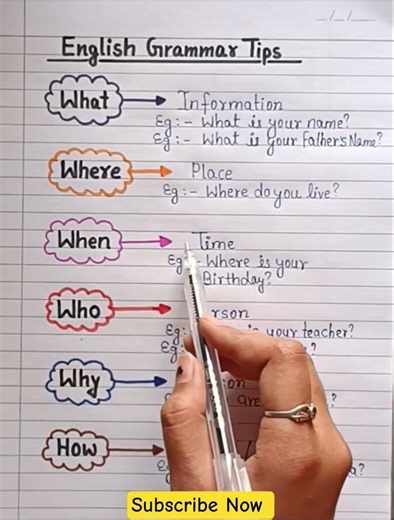 English Grammar Tips
What Information
Eg:- What is your name?
Eg:- What is your Father's Name?
Where Place
Eg:- Where do you live?
When Time
Eg:- Where is your
Birthday?
Who rson
Eg: is your teacher?
Eg: ?
Why on
are ?
How
a?
Subscribe Now